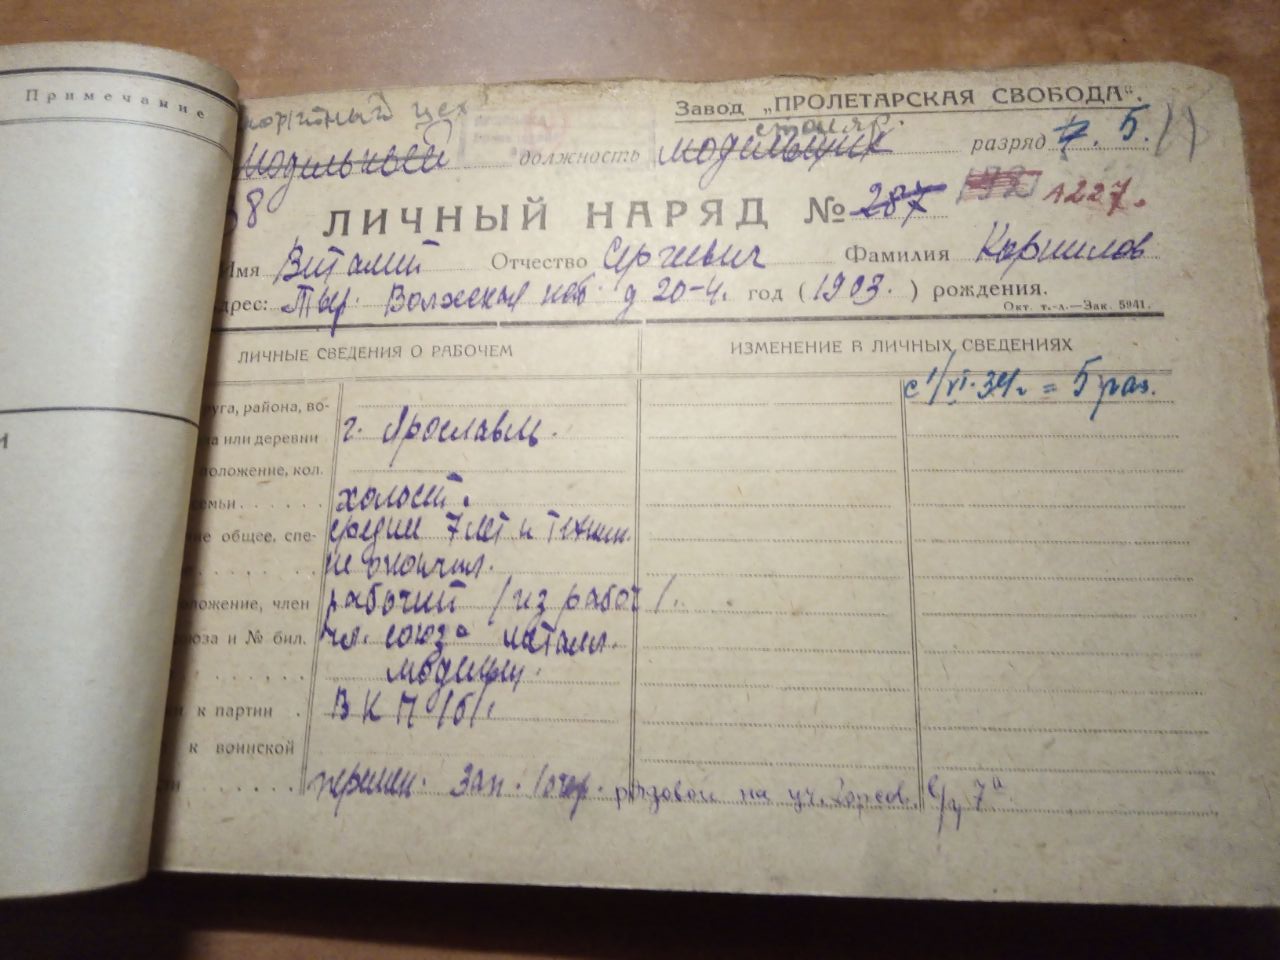 Примечание
Завод „ПРОЛЕТАРСКАЯ СВОБОДА“.
цех
столяр.
должность модельщик разряд 5.
38
ЛИЧНЫЙ НАРЯД № 287 1227.
Имя Виталий Отчество Сергеевич Фамилия Корнилов
дрес: Волжская наб. д 20-4. год (1903.) рождения.
Окт. т.-л.—Зак. 5941.
ЛИЧНЫЕ СВЕДЕНИЯ О РАБОЧЕМ ИЗМЕНЕНИЕ В ЛИЧНЫХ СВЕДЕНИЯХ
с 1/VI-34г = 5 раз.
руга, района, во-
ла или деревни г. Ярославль.
положение, кол.
семьи холост.
ие общее, спе- средн 7 лет и техник.
не окончил.
ложение, член рабочий /из рабоч/.
союза и № бил. чл. союза металл.
к партии ВКП/б/.
к воинской
перемен. Зап. рядовой на уч. в/ч 7